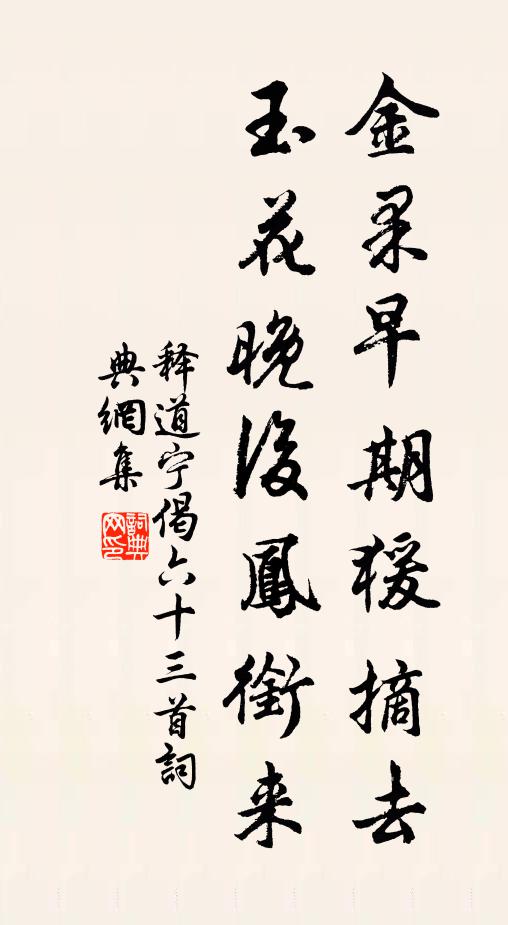 金果早期猨摘去
玉花晚後鳳銜来
释道宁偈六十三首詞
典網集
詞典
网印